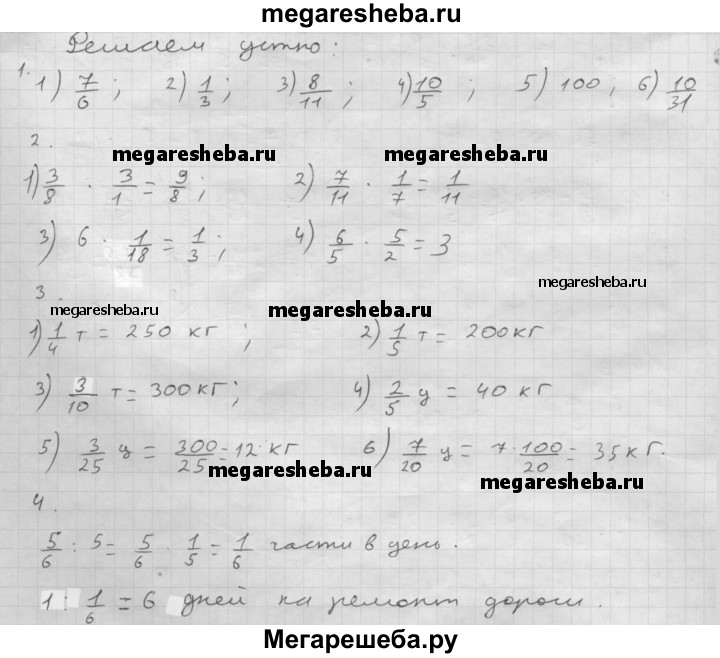 megaresheba.ru
Решаем устно:
1. 1) 7/6 ; 2) 1/3 ; 3) 8/11 ; 4) 10/5 ; 5) 100 ; 6) 10/31
2.
megaresheba.ru megaresheba.ru
1) 3/8 · 3/1 = 9/8 ; 2) 7/11 · 1/7 = 1/11
3) 6 · 1/18 = 1/3 ; 4) 6/5 · 5/2 = 3
megaresheba.ru
3.
megaresheba.ru megaresheba.ru
1) 1/4 т = 250 кг ; 2) 1/5 т = 200 кг
3) 3/10 т = 300 кг ; 4) 2/5 ц = 40 кг
5) 3/25 ц = 300/25 = 12 кг 6) 7/20 ц = 7·100/20 = 35 кг.
megaresheba.ru megaresheba.ru
4.
5/6 : 5 = 5/6 · 1/5 = 1/6 части в день.
1 : 1/6 = 6 дней на ремонт дороги.
Мегарешеба.ру